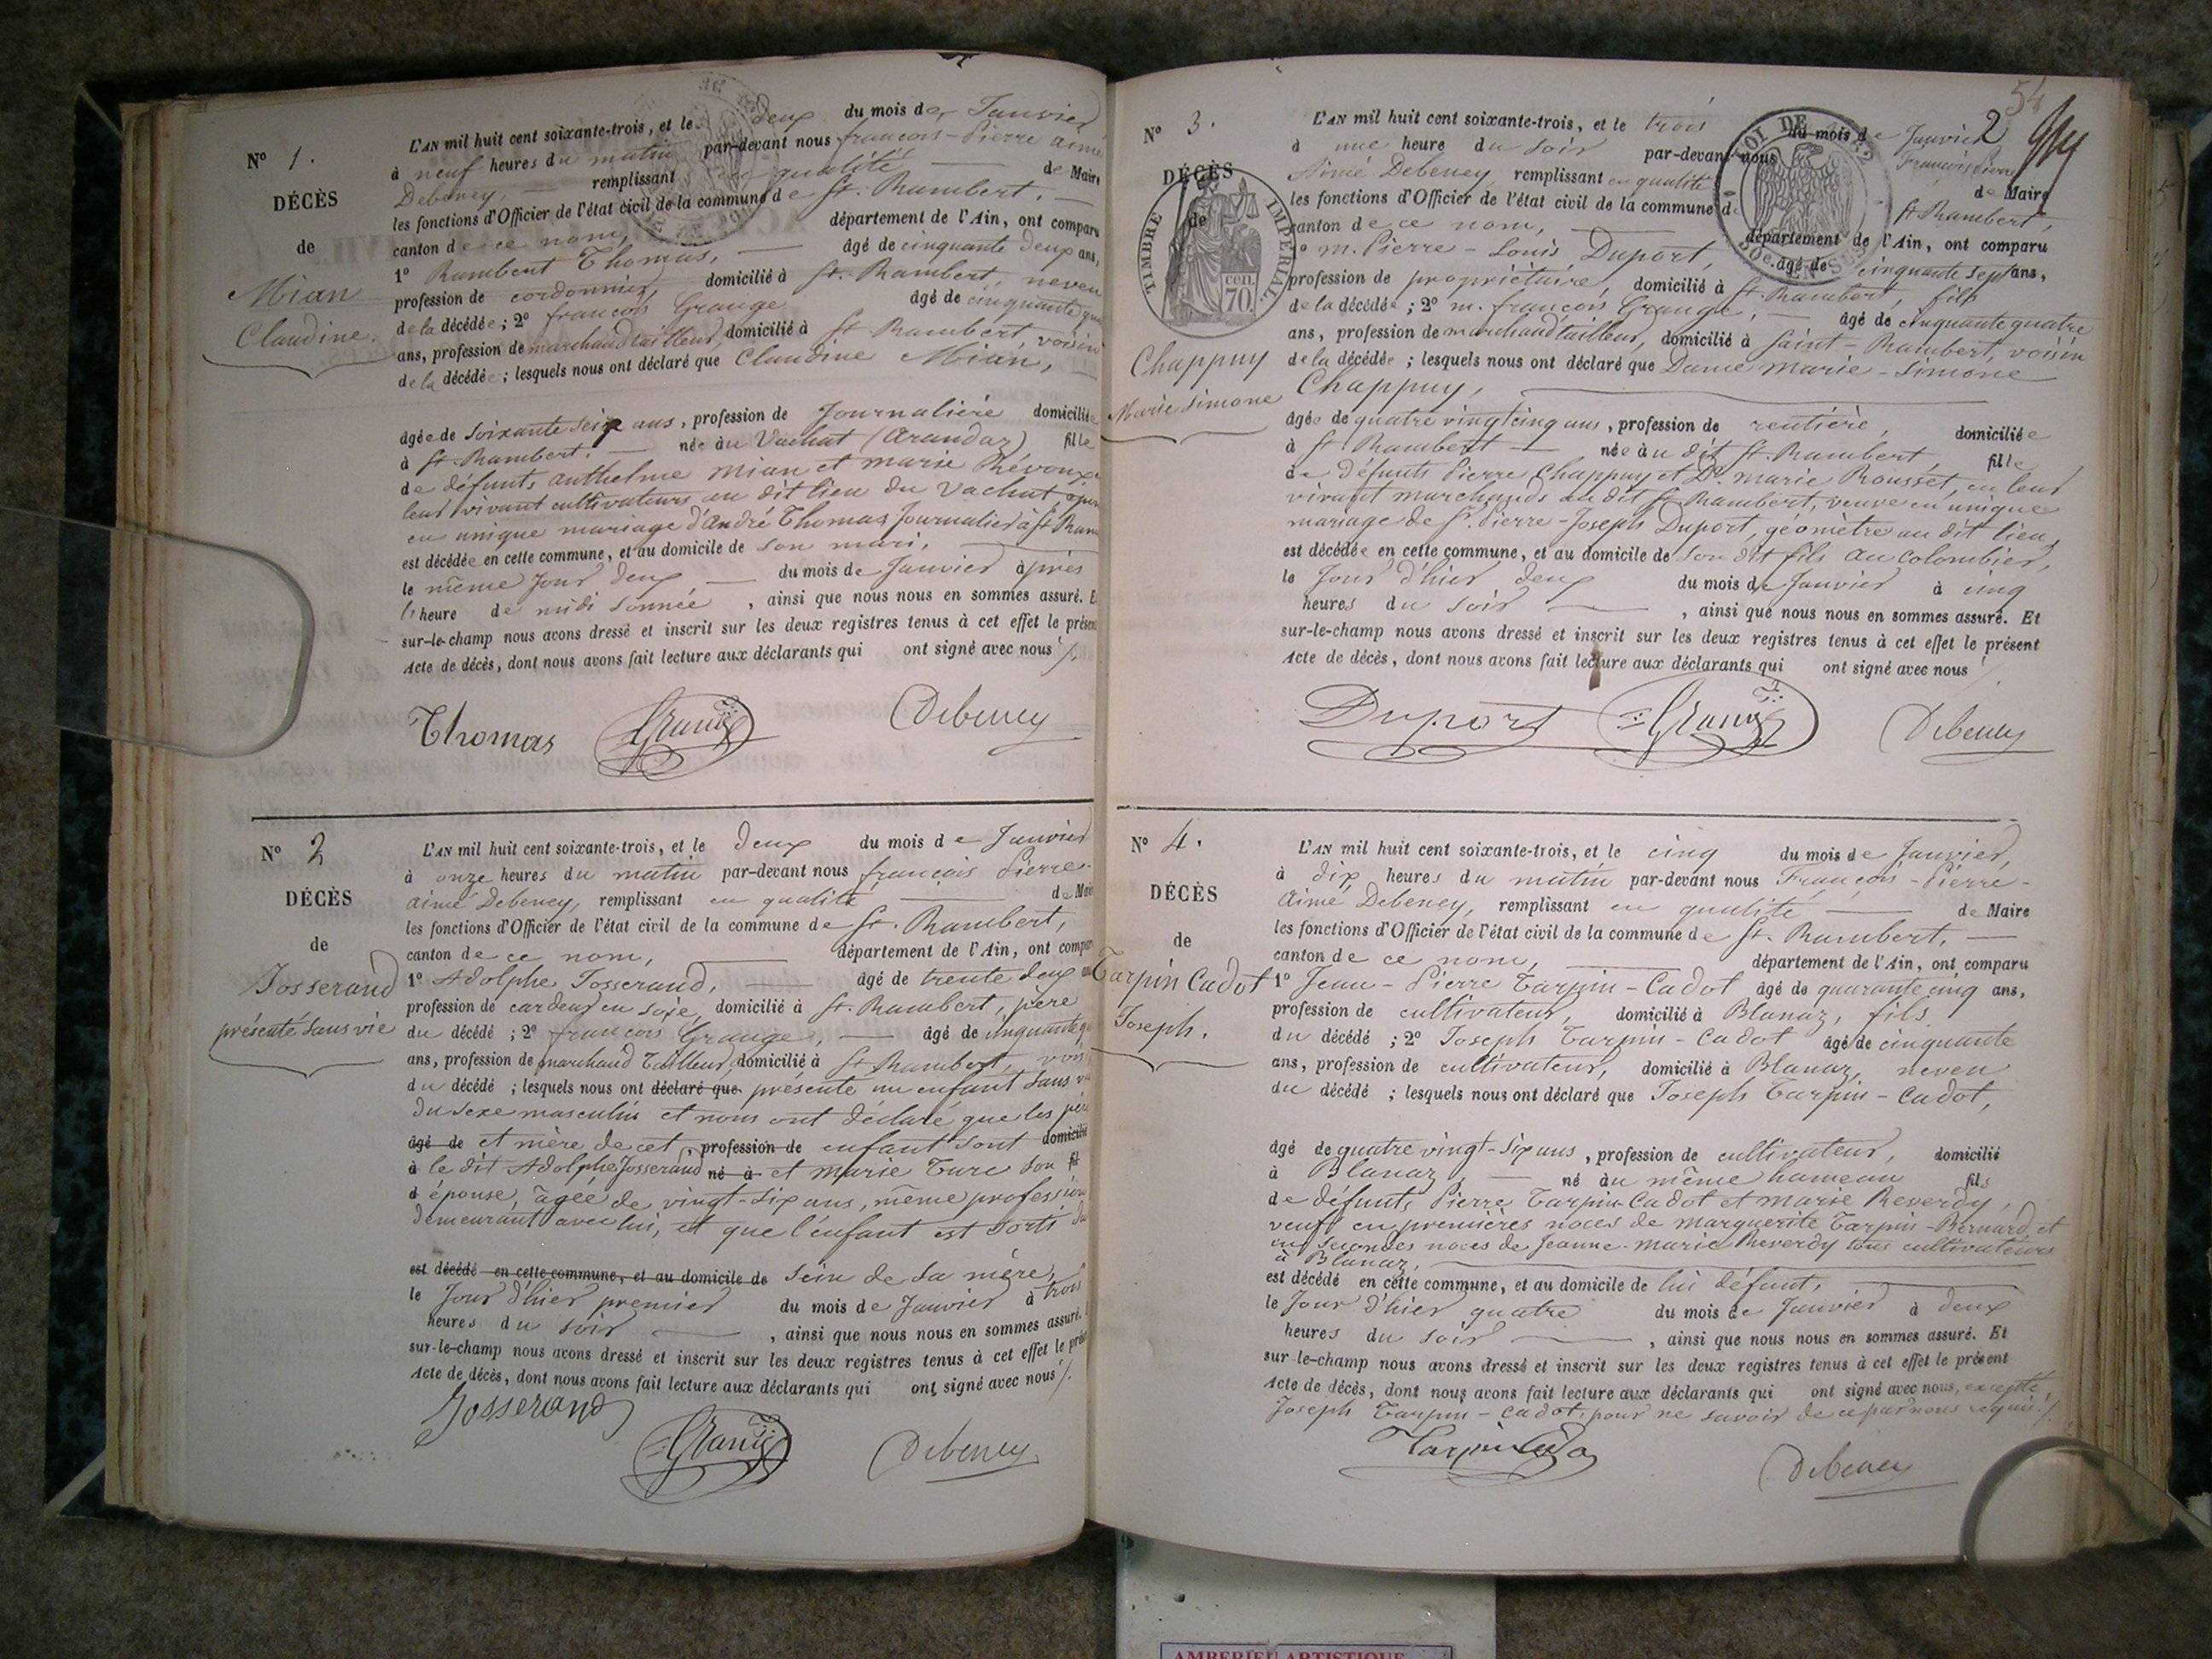 N° 1.
DÉCÈS
de
Mian
Claudine.
L'AN mil huit cent soixante-trois, et le deux du mois de Janvier
à neuf heures du matin par-devant nous françois-Pierre aimé
Debeney, remplissant en qualité de Maire
les fonctions d'Officier de l'état civil de la commune de St. Rambert.
canton de ce nom, département de l'Ain, ont comparu
1° Rambert Thomas, âgé de cinquante deux ans,
profession de cordonnier, domicilié à St. Rambert, neveu
de la décédée ; 2° françois Grange âgé de cinquante
ans, profession de marchand tailleur, domicilié à St. Rambert voisin
de la décédée ; lesquels nous ont déclaré que Claudine Mian,
âgée de soixante seize ans, profession de Journalière domiciliée
à St. Rambert. née au Vachat (Arandaz) fille
de défunts anthelme Mian et marie Révoux
leur vivant cultivateurs au dit lieu du Vachat
en unique mariage d'André Thomas Journalier à St
est décédée en cette commune, et au domicile de son mari,
le même Jour deux du mois de Janvier après
l'heure de midi sonnée, ainsi que nous nous en sommes assuré.
sur-le-champ nous avons dressé et inscrit sur les deux registres tenus à cet effet le présent
Acte de décès, dont nous avons fait lecture aux déclarants qui ont signé avec nous /.
Thomas Grange Debeney
N° 2
DÉCÈS
de
Josserand
présenté sans vie
L'AN mil huit cent soixante-trois, et le deux du mois de Janvier
à onze heures du matin par-devant nous françois Pierre-
aimé Debeney, remplissant en qualité de Maire
les fonctions d'Officier de l'état civil de la commune de St. Rambert,
canton de ce nom, département de l'Ain, ont
1° Adolphe Josserand, âgé de trente deux
profession de cardeur en soie, domicilié à St. Rambert, père
du décédé ; 2° françois Grange, âgé de cinquante
ans, profession de marchand Tailleur, domicilié à St Rambert,
du décédé ; lesquels nous ont déclaré que présenté un enfant sans
du sexe masculin et nous ont déclaré que les
âgé de et mère de cet, profession de enfant sont domicilié
à le dit Adolphe Josserand né à et marie Turc son
d épouse, âgée de vingt-six ans, même profession
demeurant avec lui, et que l'enfant est sorti du
est décédé en cette commune, et au domicile de sein de sa mère,
le Jour d'hier premier du mois de Janvier à trois
heures du soir, ainsi que nous nous en sommes assuré.
sur-le-champ nous avons dressé et inscrit sur les deux registres tenus à cet effet le
Acte de décès, dont nous avons fait lecture aux déclarants qui ont signé avec nous /.
Josserand Grange Debeney
54
2
N° 3.
DÉCÈS
de
TIMBRE IMPERIAL
70. cen
Chappuy
Marie Simone
L'AN mil huit cent soixante-trois, et le trois du mois de Janvier
à une heure du soir par-devant nous François Pierre
Aimé Debeney, remplissant en qualité de Maire
les fonctions d'Officier de l'état civil de la commune de St. Rambert,
canton de ce nom, département de l'Ain, ont comparu
1° m. Pierre-Louis Duport, âgé de cinquante sept ans,
profession de propriétaire, domicilié à St. Rambert, fils
de la décédée ; 2° m. françois Grange, âgé de cinquante quatre
ans, profession de marchand tailleur, domicilié à Saint-Rambert, voisin
de la décédée ; lesquels nous ont déclaré que Dame marie-simone
Chappuy,
âgée de quatre vingt cinq ans, profession de rentière, domiciliée
à St. Rambert née au dit St. Rambert, fille
de défunts Pierre Chappuy et De. marie Rousset, en leur
vivant marchands au dit St. Rambert, veuve en unique
mariage de Sr. Pierre-Joseph Duport, géomètre au dit lieu,
est décédée en cette commune, et au domicile de son dit fils au Colombier,
le Jour d'hier deux du mois de Janvier à cinq
heures du soir, ainsi que nous nous en sommes assuré. Et
sur-le-champ nous avons dressé et inscrit sur les deux registres tenus à cet effet le présent
Acte de décès, dont nous avons fait lecture aux déclarants qui ont signé avec nous /.
Duport Grange Debeney
N° 4.
DÉCÈS
de
Tarpin Cadot
Joseph.
L'AN mil huit cent soixante-trois, et le cinq du mois de Janvier,
à dix heures du matin par-devant nous François-Pierre-
Aimé Debeney, remplissant en qualité de Maire
les fonctions d'Officier de l'état civil de la commune de St. Rambert.
canton de ce nom, département de l'Ain, ont comparu
1° Jean-Pierre Tarpin-Cadot âgé de quarante cinq ans,
profession de cultivateur, domicilié à Blanaz, fils
du décédé ; 2° Joseph Tarpin-Cadot âgé de cinquante
ans, profession de cultivateur, domicilié à Blanaz, neveu
du décédé ; lesquels nous ont déclaré que Joseph Tarpin-Cadot,
âgé de quatre vingt-six ans, profession de cultivateur, domicilié
à Blanaz, né au même hameau fils
de défunts Pierre Tarpin-Cadot et marie Reverdy,
veuf en premières noces de marguerite Tarpin-Bernard et
en secondes noces de Jeanne-marie Reverdy tous cultivateurs
à Blanaz,
est décédé en cette commune, et au domicile de lui défunt,
le Jour d'hier quatre du mois de Janvier à deux
heures du soir, ainsi que nous nous en sommes assuré. Et
sur-le-champ nous avons dressé et inscrit sur les deux registres tenus à cet effet le présent
Acte de décès, dont nous avons fait lecture aux déclarants qui ont signé avec nous, excepté
Joseph Tarpin-Cadot, pour ne savoir de ce par nous requis /.
Tarpin Cado Debeney
AMBERIEU ARTISTIQUE